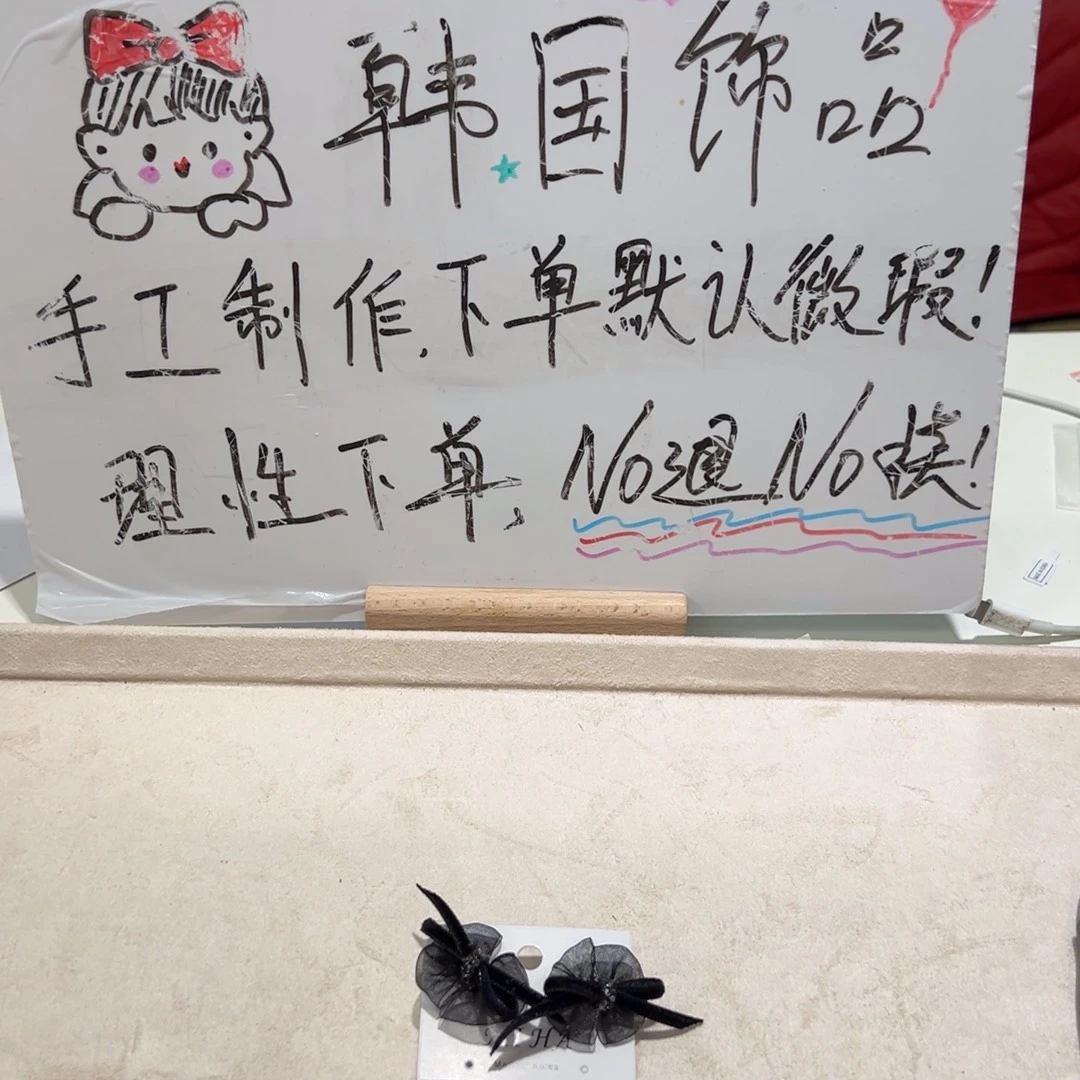 韩国饰品
手工制作,下单默认微瑕!
理性下单, No退No换!
HA
Korea